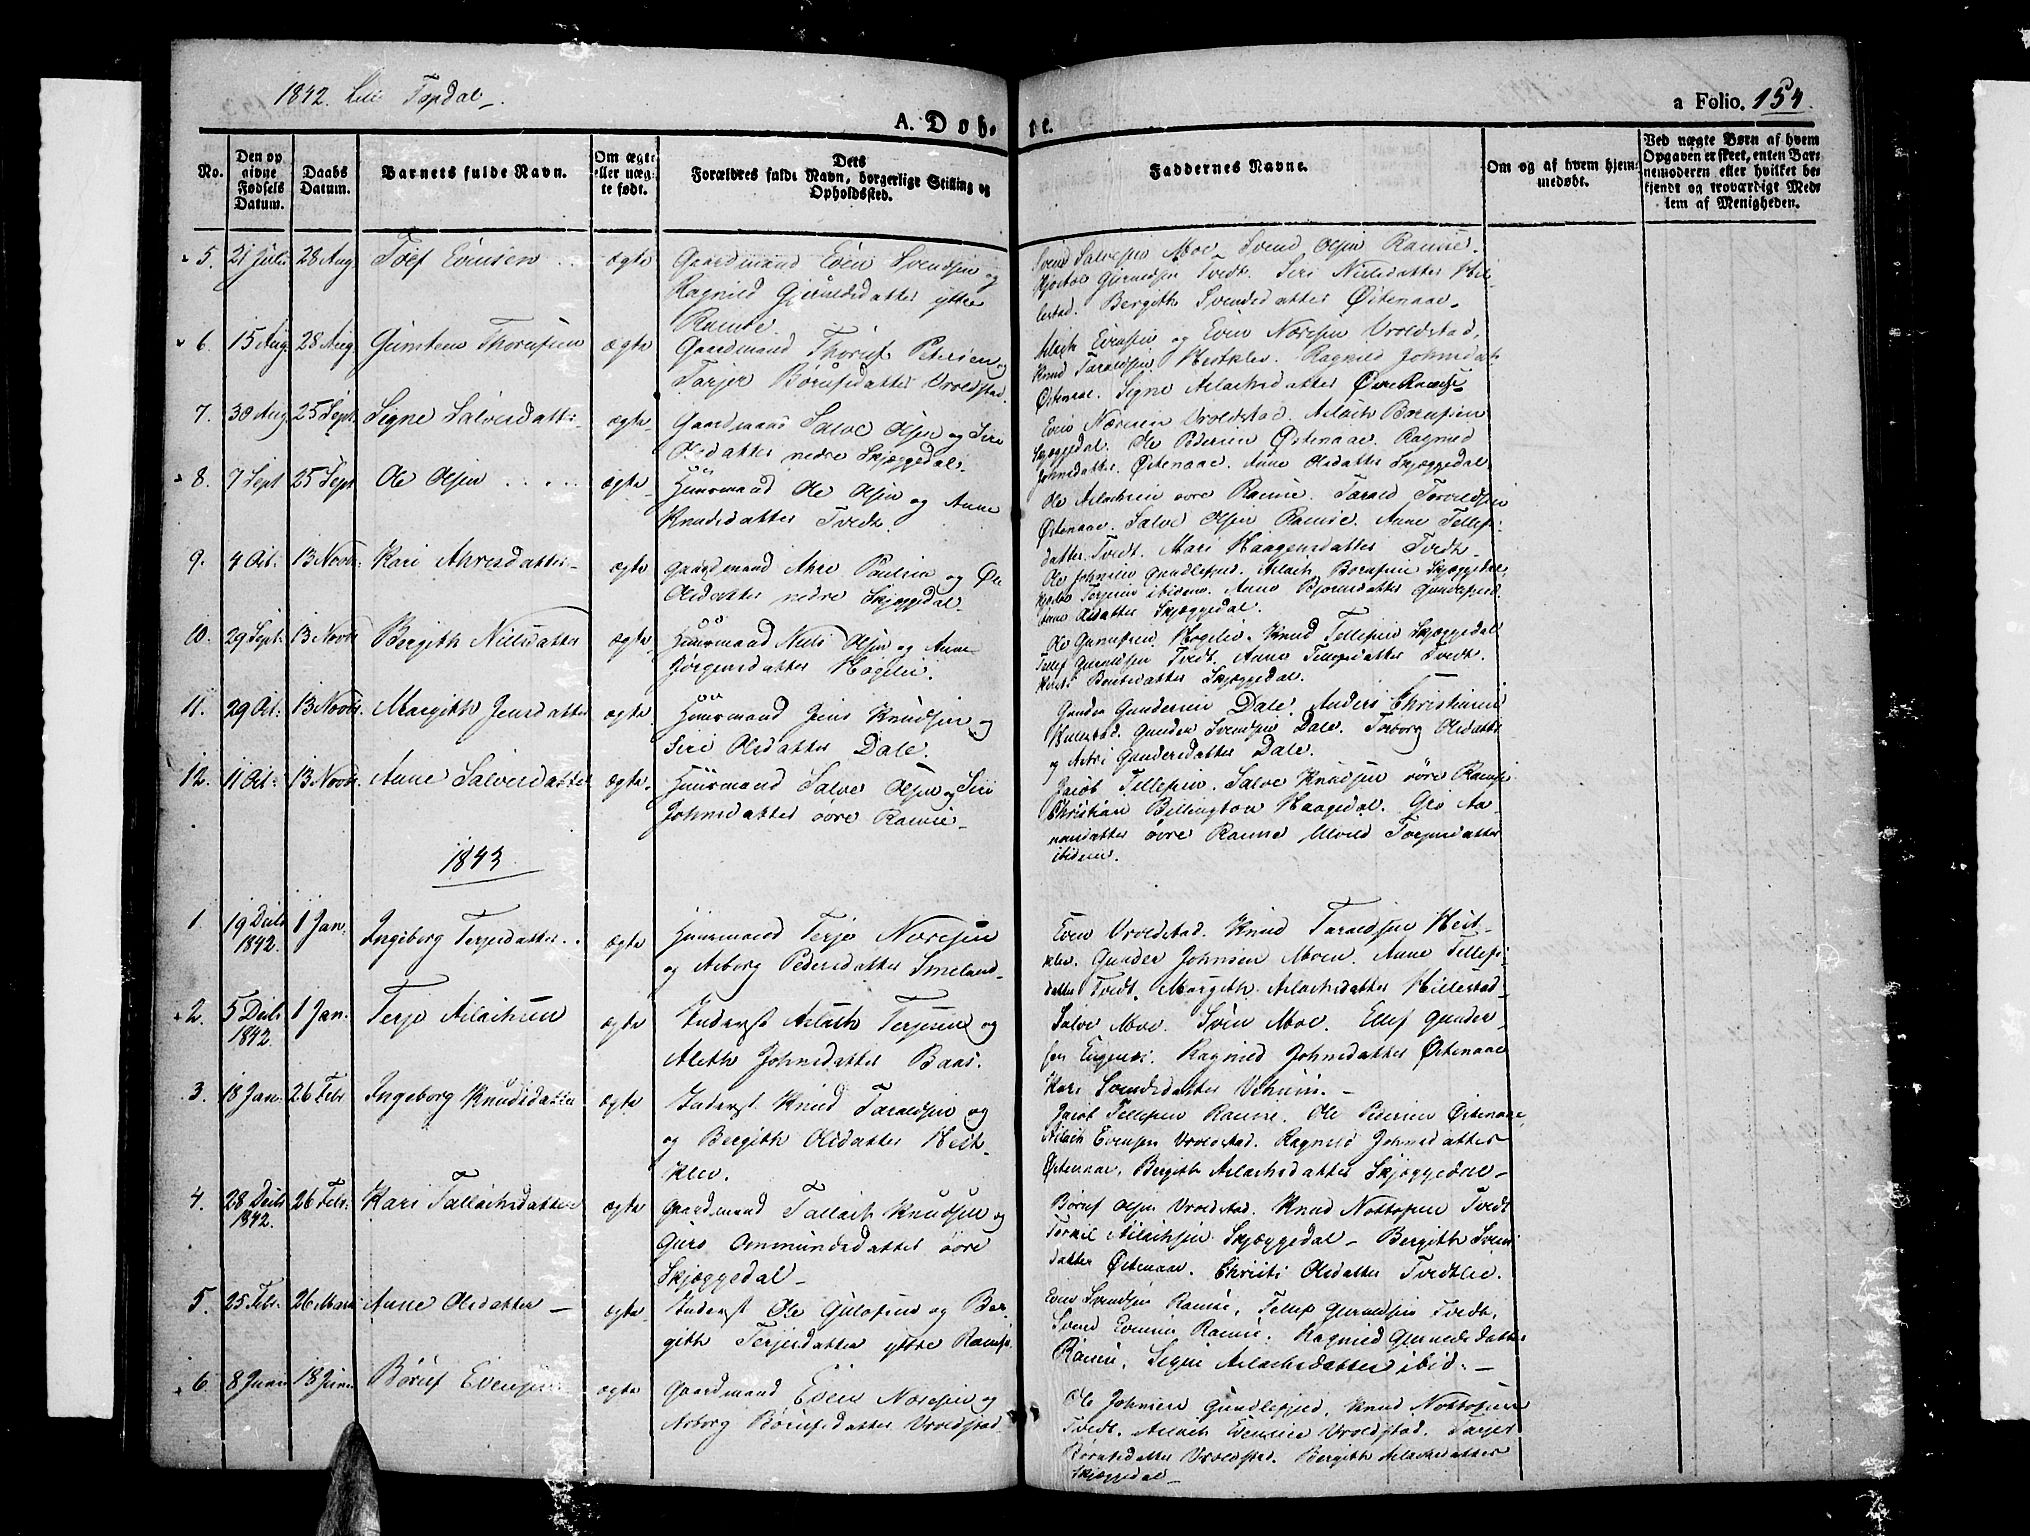 1842. Lille Topdal
A. Døb- te.
a Folio. 154.
No.
Den op givne Fødsels Datum.
Daabs Datum.
Barnets fulde Navn.
Om ægte eller uægte født.
Dets Forældres fulde Navn, borgerlige Stilling og Opholdssted.
Faddernes Navne.
Om og af hvem hjemmedøbt.
Ved uægte Børn af hvem Opgaven er skeet, enten Barnemoderen eller hvilket bekjendt og troværdigt Medlem af Menigheden.
5. 21 Juli 28 Aug. Toef Evensen ægte Gaardmand Even Svendsen og
Ragnild Gjeruldsdatter yttre
Ramse.
Svend Salvesen Moe. Svend Olsen Ramse.
Gjeruldsen Tvedt. Siri Nielsdatter Hil-
lestad. Bergith Svendsdatter Østenaae.
6. 15 Aug. 28 Aug. Gunsteen Thorufsen ægte Gaardmand Thoruf Petersen og
Tarjer Børufsdatter Vroldstad.
Evensen og Even Noresen Vroldstad.
Knud Taraldsen Hestklev. Ragnild Johnsdatt
Østenaae. Segne Aslachsdatter Øvre Ramse
7. 30 Aug. 25 Sept. Segne Salvesdatter ægte Gaardmand Salve Olsen og Siri
Olsdatter nedre Skjæggedal.
Even Noresen Vroldstad. Aslach Børufsen
Skjæggedal. Ole Pedersen Østenaae. Ragnild
Johnsdatter Østenaae. Anne Olsdatter Skjæggedal
8. 7 Sept 25 Sept Ole Olsen ægte Huusmand Ole Olsen og Anne
Knudsdatter Tvedt.
Ole Aslachsen øvre Ramse. Tarald Torvildsen
Østenaae. Salve Olsen Ramse. Anne Tellefs-
datter Tvedt. Mari Haagensdatter Tvedt.
9. 4 Oct. 13 Novbr. Kari Ahresdatter ægte Gaardmand Ahre Paulsen og
Olsdatter nedre Skjæggedal
Ole Johnsen Gundlefjed. Aslach Børufsen Skjæggedal,
Terjesen ibidem. Anne Bjørnsdatter Gundlefjed.
Anne Olsdatter Skjæggedal.
10. 29 Sept. 13 Novbr Bergith Nielsdatter ægte Huusmand Niels Olsen og Anne
Jørgensdatter Høgelie.
Ole Gunufsen Høgelie. Knud Tellefsen Skjæggedal
Tellef Gjeruldsen Tvedt. Anne Tellefsdatter Tvedt.
Bentsdatter Skjæggedal.
11. 29 Oct. 13 Novbr. Margith Jensdatter ægte Huusmand Jens Knudsen og
Siri Olsdatter Dale.
Gunder Gundersen Dale. Anders Christensen
Hillestad. Gunder Svendsen Dale. Torborg Olsdatter
og Astri Gundersdatter Dale.
12. 11 Oct. 13 Novbr. Anne Salvesdatter ægte Huusmand Salve Olsen og Siri
Johnsdatter øvre Ramse
Jacob Tellefsen. Salve Knudsen øvre Ramse
Christian Billington Haagedal. Gro Aa-
nonsdatter øvre Ramse Torjusdatter
ibidem.
1843
1. 19 Decbr 1842. 1 Jan. Ingeborg Terjesdatter ægte Huusmand Terje Noresen
og Asborg Pedersdatter Smeland
Even Vroldstad. Knud Taraldsen Hest-
klev. Gunder Johnsen Moen. Anne Tellefs-
datter Tvedt. Margith Aslachsdatter Hillestad
2. 5 Decbr 1842. 1 Jan. Terje Aslachsen ægte Inderst Aslach Terjesen og
Aleth Johnsdatter Baas.
Salve Moe. Sven Moe. Ellef Gunder-
sen Engenes. Ragnild Johnsdatter Østenaae
Kari Svendsdatter Vehuus.
3. 18 Jan. 26 Febr Ingeborg Knudsdatter ægte Inderst Knud Taraldsen og
og Bergith Olsdatter Hest-
klev.
Jacob Tellefsen Ramse. Ole Pedersen Østenaae,
Aslach Evensen Vroldstad. Ragnild Johnsdatter
Østenaae. Bergith Aslachsdatter Skjæggedal
4. 28 Decbr 1842. 26 Febr. Kari Tallachsdatter ægte Gaardmand Tallach Knudsen og
Guro Ommundsdatter øvre
Skjæggedal
Børuf Olsen Vroldstad. Knud Nottosen Tvedt
Torkil Aslachsen Skjæggedal. Bergith Svens-
datter Østenaae. Christi Olsdatter Tvedtlie.
5. 25 Febr. 26 Marts Anne Olsdatter ægte Inderst Ole Gulofsen og Ber-
gith Terjesdatter yttre Ramse
Even Svendsen Ramse. Tellef Gjeruldsen Tvedt.
Svend Evensen Ramse. Ragnild Gjeruldsdatter
Ramse. Segne Aslachsdatter ibid.
6. 8 Juni 18 Juni Børuf Evensen ægte Gaardmand Even Noresen og
Asborg Børufsdatter Vroldstad
Ole Johnsen Gundlefjed. Knud Nottosen
Tvedt. Aslach Evensen Vroldstad. Tarjer
Børufsdatter Vroldstad. Bergith Aslachsdatter
Skjæggedal